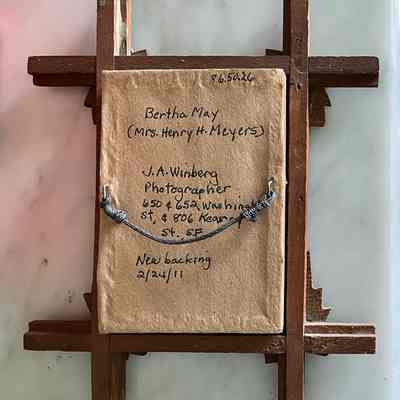 86.50.26
Bertha May
(Mrs. Henry H. Meyers)
J.A. Winberg
Photographer
650 & 652 Washing
St, & 806 Kearny
St. SF
New backing
2/24/11